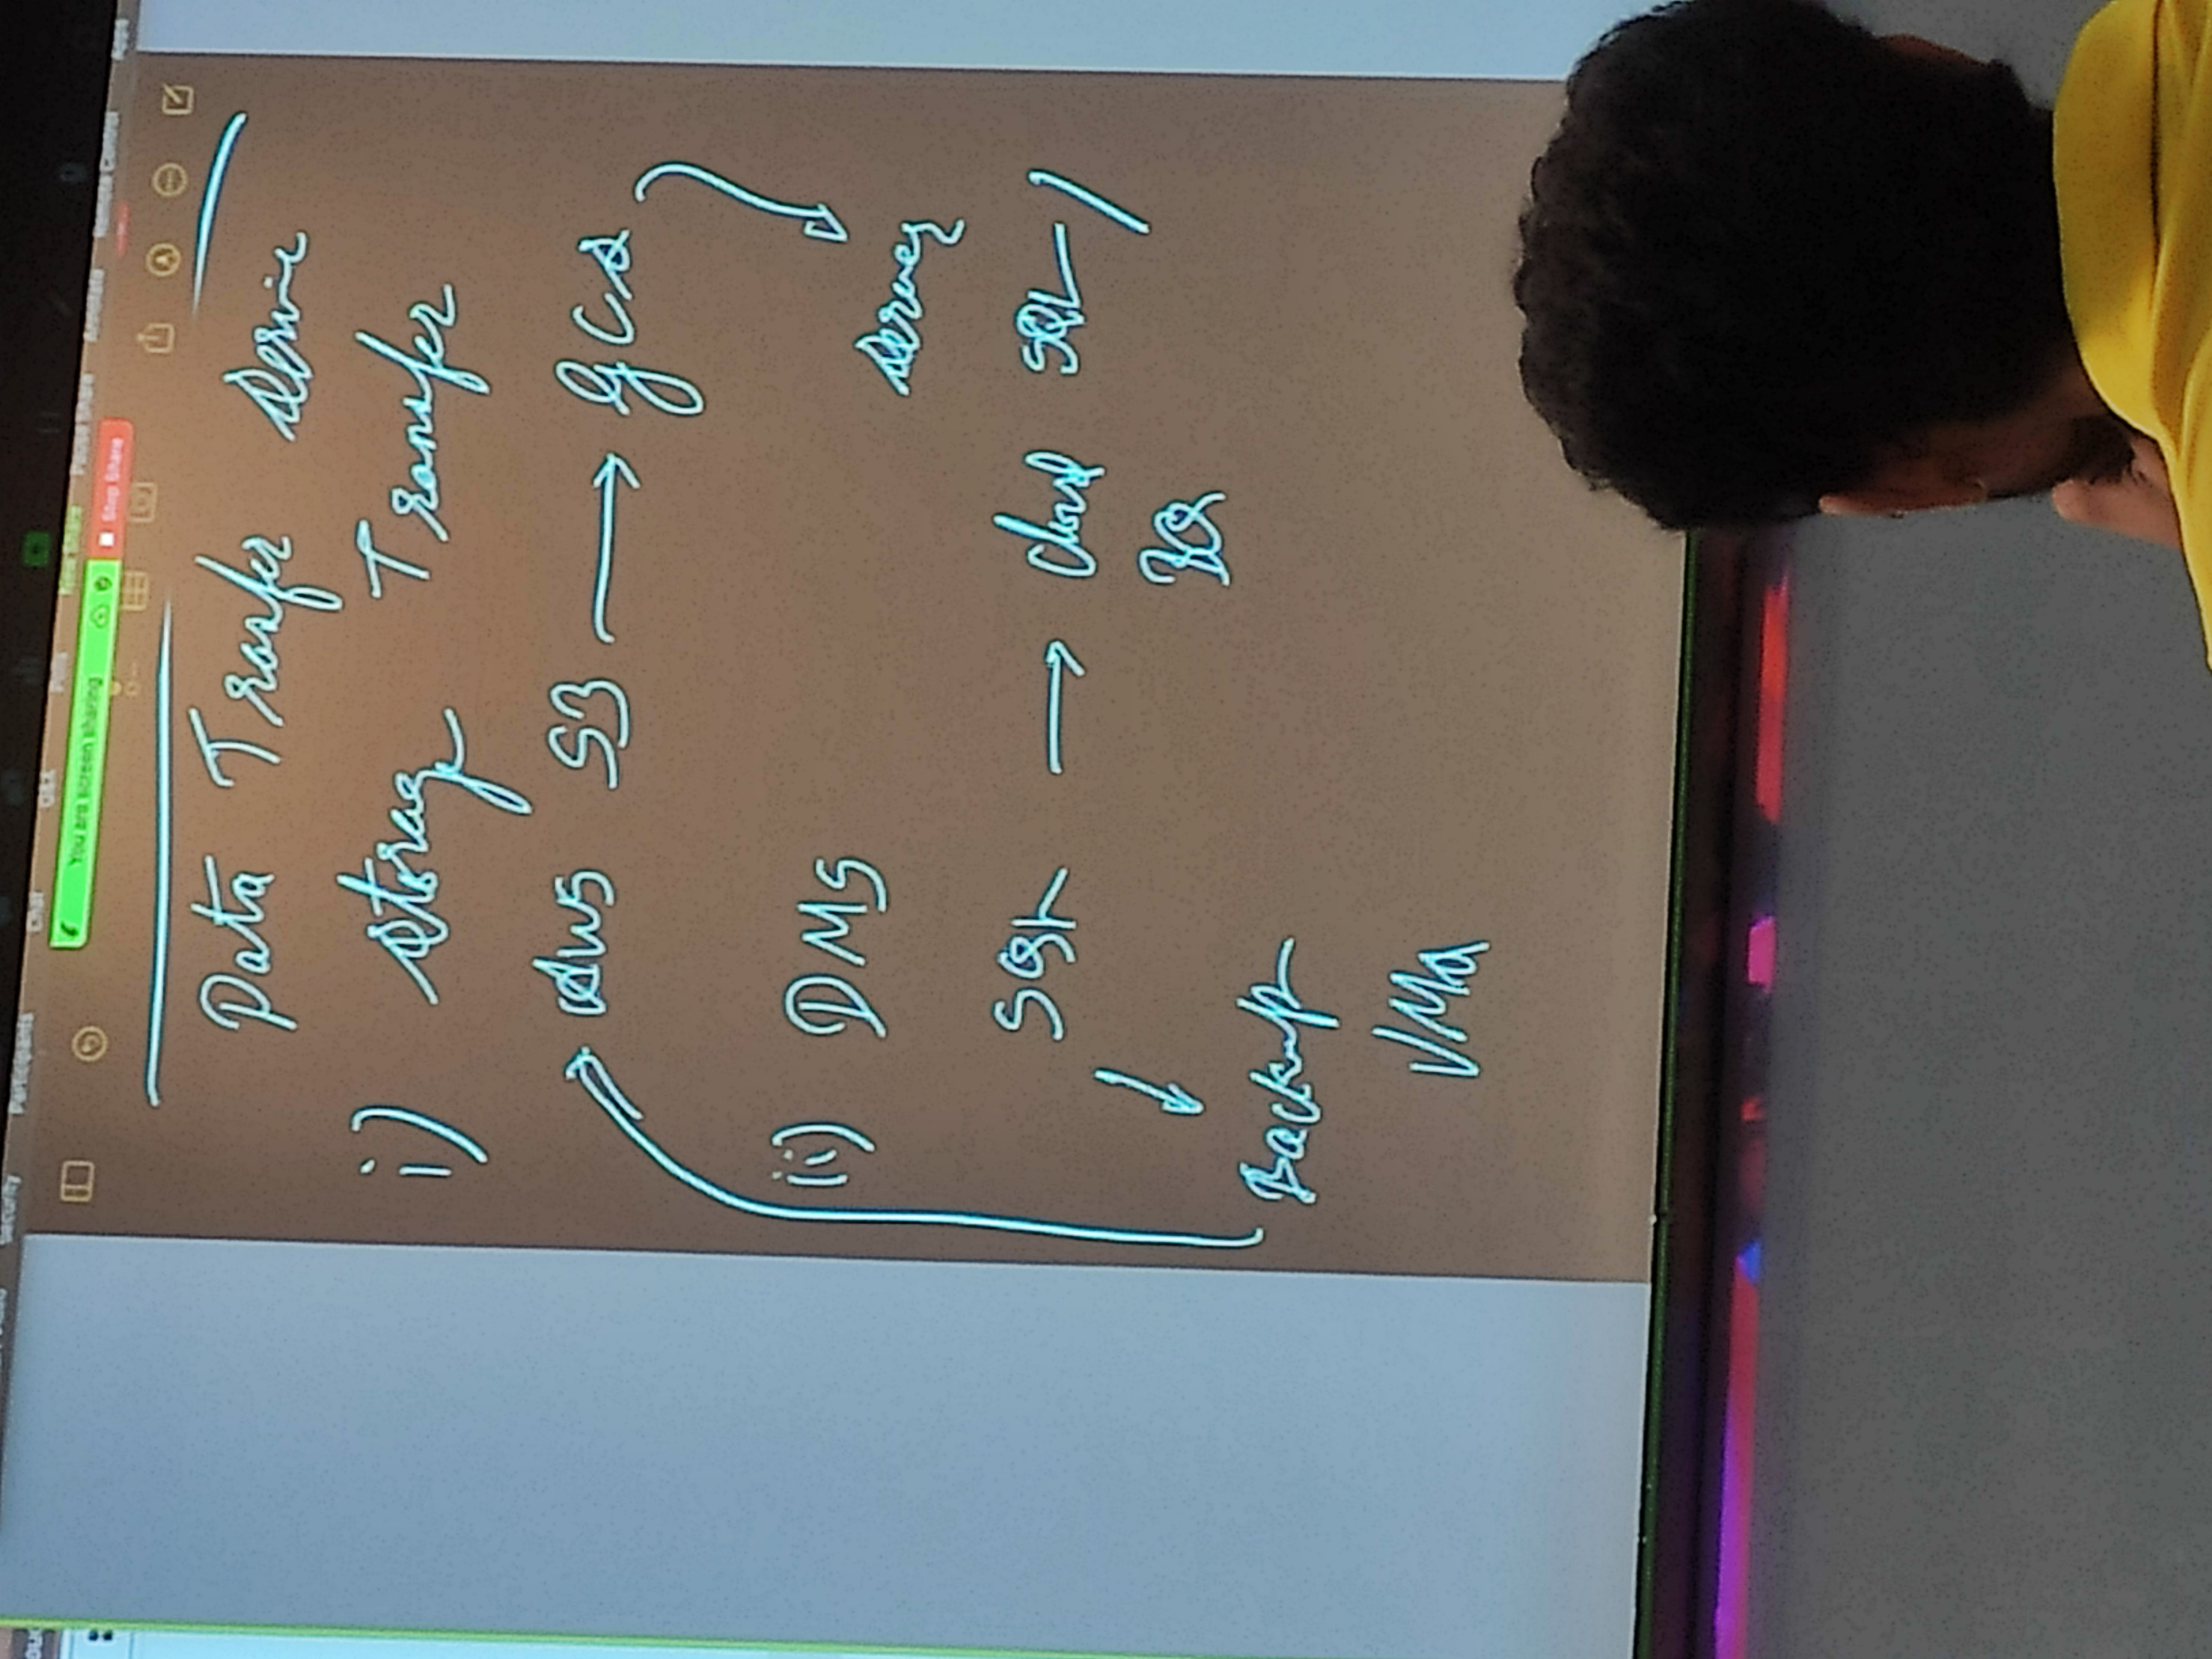 Security Participants Chat Q&A Polls New Share Pause Share Annotate Remote Control Apps
You are screen sharing Stop Share
Data Trasfer Servic
i) Storage Transfer
AWS S3 → GCS
(ii) DMS
SQL → Cloud SQL /
BQ
Backup
VMs